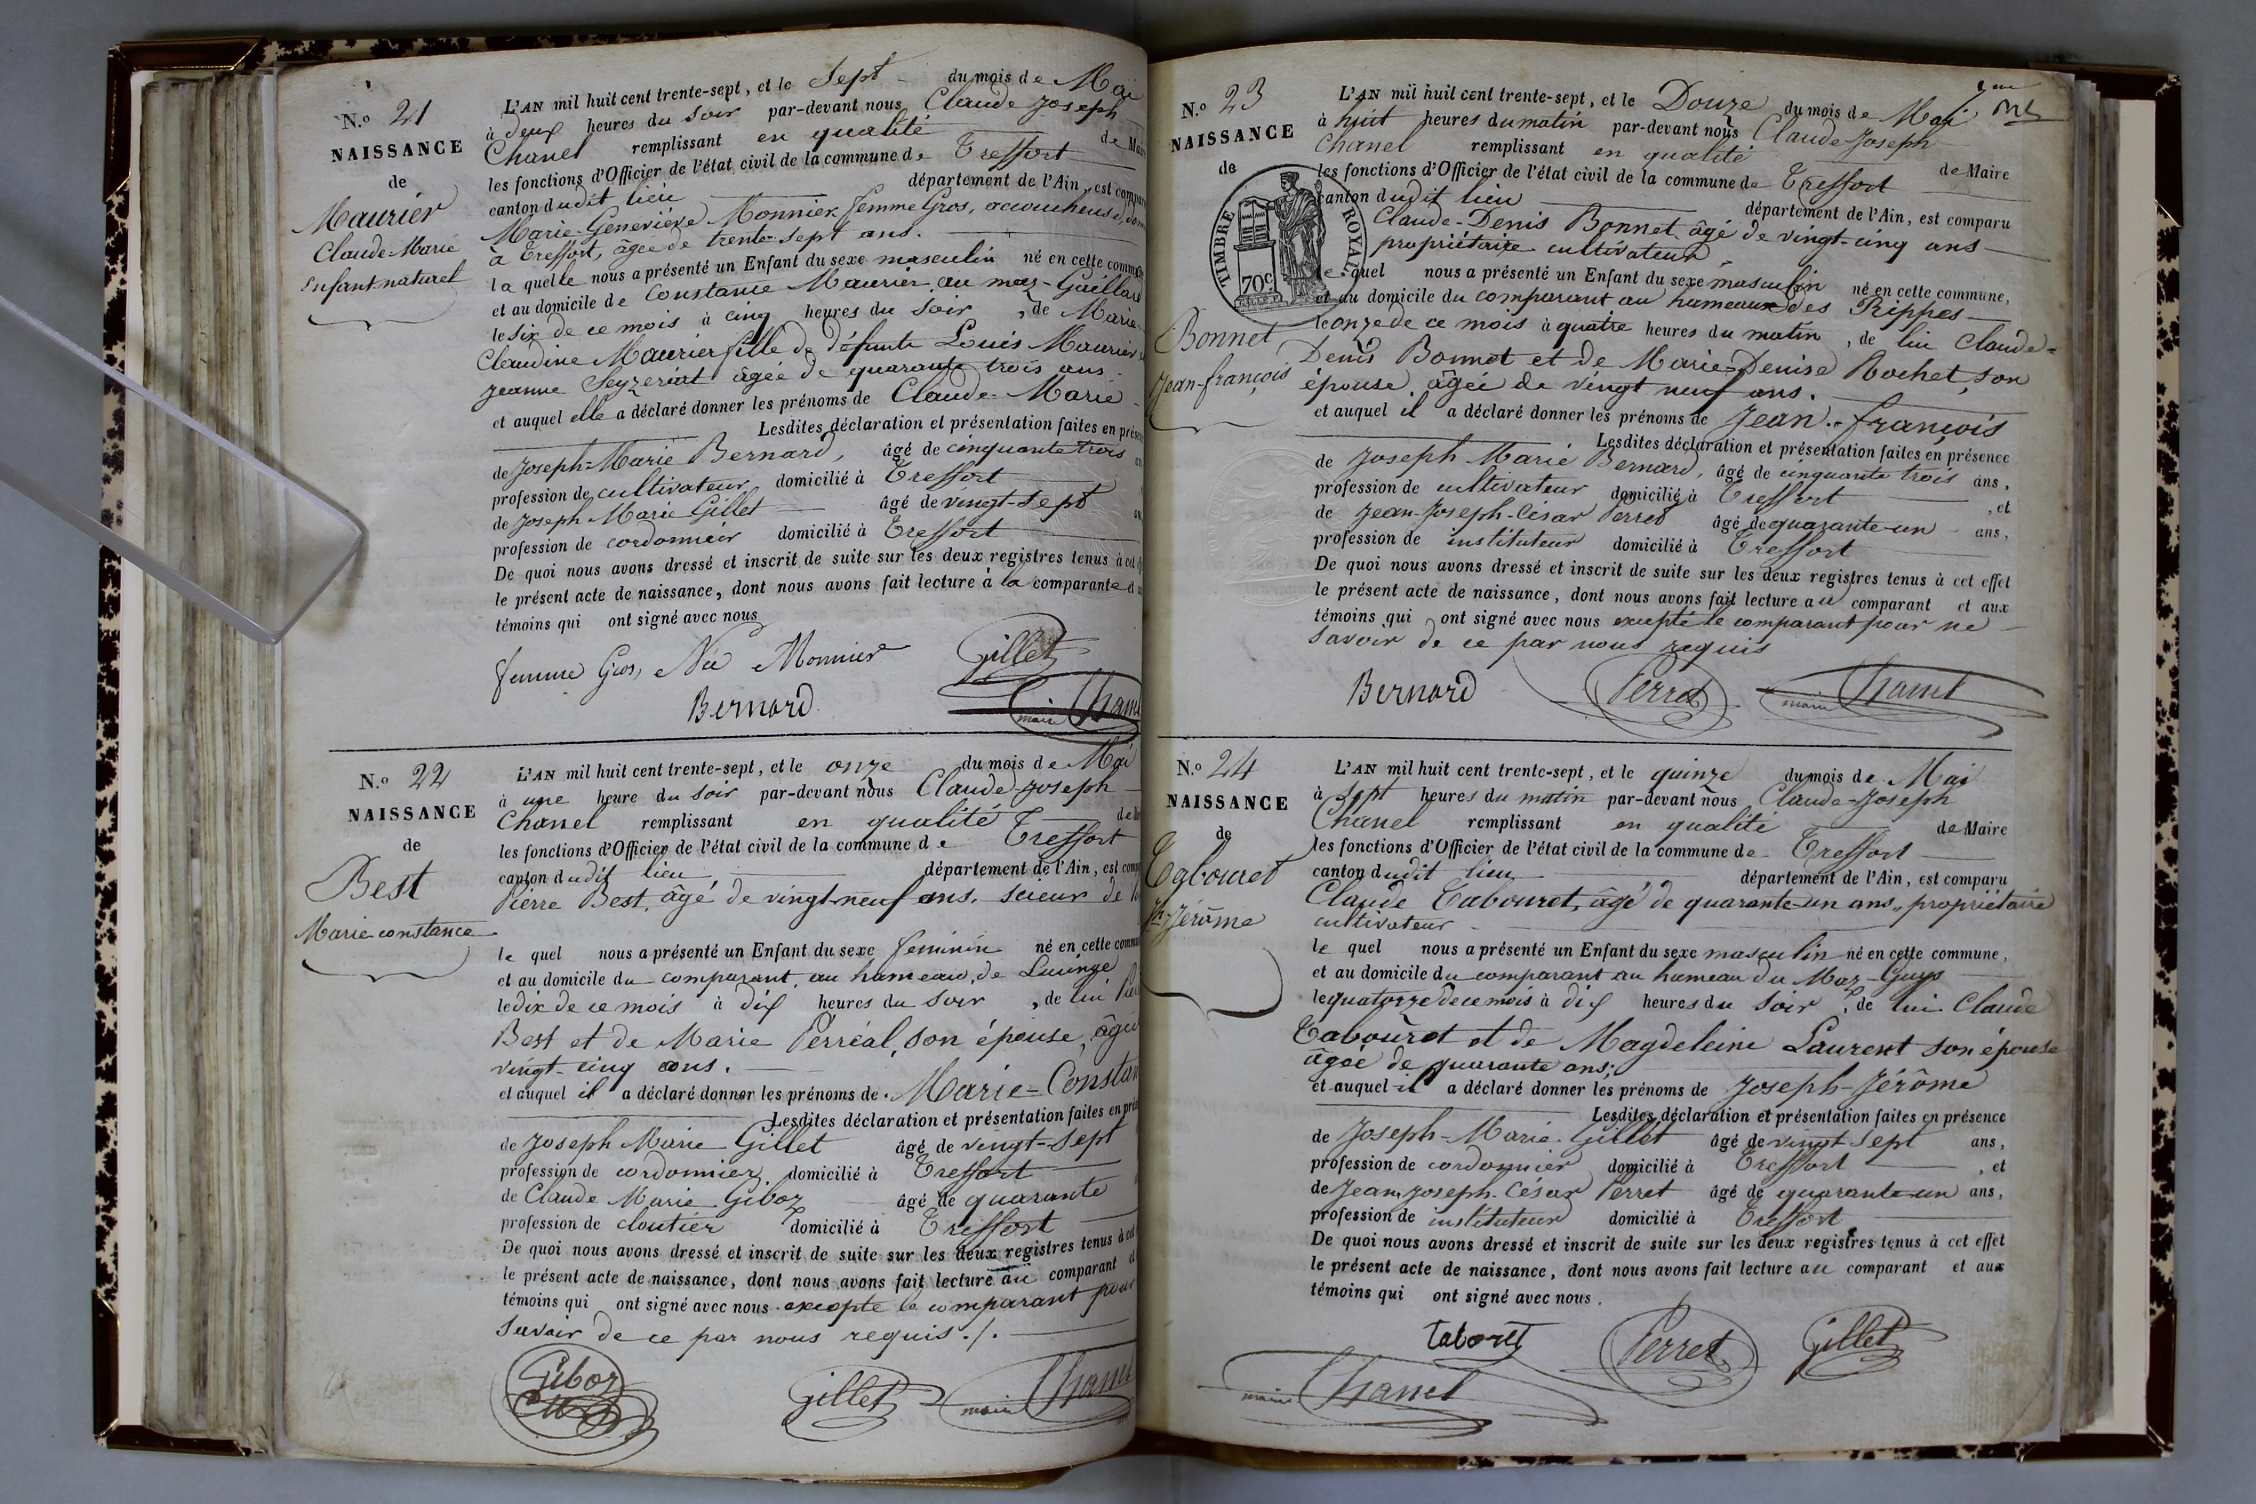 N.º 21
NAISSANCE
de
Maurier
Claude Marie
Enfant naturel
L'AN mil huit cent trente-sept, et le Sept du mois de Mai
à deux heures du soir par-devant nous Claude Joseph
Chanel remplissant en qualité de Mai
les fonctions d'Officier de l'état civil de la commune de Treffort
canton dudit lieu département de l'Ain, est compa
Marie-Geneviève Monnier femme Gros, accoucheuse,
à Treffort, âgée de trente-sept ans.
la quelle nous a présenté un Enfant du sexe masculin né en cette commu
et au domicile de Constance Maurier, au maz-Gaillard
le six de ce mois à cinq heures du soir, de Marie
Claudine Maurier fille de défunts Louis Maurier
Jeanne Seyzeriat âgée de quarante trois ans.
et auquel elle a déclaré donner les prénoms de Claude-Marie
Lesdites déclaration et présentation faites en prése
de Joseph-Marie Bernard, âgé de cinquante trois an
profession de cultivateur domicilié à Treffort
de Joseph Marie Gillet âgé de vingt-sept an
profession de cordonnier domicilié à Treffort
De quoi nous avons dressé et inscrit de suite sur les deux registres tenus à cet
le présent acte de naissance, dont nous avons fait lecture à la comparante et
témoins qui ont signé avec nous
femme Gros, Née Monnier Gillet
Bernard maire Chanel
N.º 22
NAISSANCE
de
Best
Marie constance
L'AN mil huit cent trente-sept, et le onze du mois de Mai
à une heure du soir par-devant nous Claude-Joseph
Chanel remplissant en qualité de
les fonctions d'Officier de l'état civil de la commune de Treffort
canton dudit lieu département de l'Ain, est comp
Pierre Best, âgé de vingt-neuf ans, scieur de
le quel nous a présenté un Enfant du sexe féminin né en cette commu
et au domicile du comparant, au hameau de Lucinge
le dix de ce mois à dix heures du soir, de lui
Best et de Marie Perréal, son épouse, âgée
vingt-cinq ans.
et auquel il a déclaré donner les prénoms de Marie-Constan
Lesdites déclaration et présentation faites en pré
de Joseph Marie Gillet âgé de vingt-sept
profession de cordonnier domicilié à Treffort
de Claude Marie Giboz âgé de quarante
profession de cloutier domicilié à Treffort
De quoi nous avons dressé et inscrit de suite sur les deux registres tenus à cet
le présent acte de naissance, dont nous avons fait lecture au comparant et
témoins qui ont signé avec nous excepté le comparant pour
savoir de ce par nous requis ./.
Giboz Gillet maire Chanel
N.º 23
NAISSANCE
de
TIMBRE ROYAL
70 c
Bonnet
Jean-françois
L'AN mil huit cent trente-sept, et le Douze du mois de Mai
à huit heures du matin par-devant nous Claude-Joseph
Chanel remplissant en qualité de Maire
les fonctions d'Officier de l'état civil de la commune de Treffort
canton dudit lieu département de l'Ain, est comparu
Claude-Denis Bonnet âgé de vingt-cinq ans
propriétaire cultivateur
le quel nous a présenté un Enfant du sexe masculin né en cette commune,
et au domicile du comparant au hameau des Rippes
le onze de ce mois à quatre heures du matin, de lui Claude-
Denis Bonnet et de Marie-Denise Rochet, son
épouse, âgée de vingt neuf ans.
et auquel il a déclaré donner les prénoms de Jean-françois
Lesdites déclaration et présentation faites en présence
de Joseph Marie Bernard, âgé de cinquante trois ans,
profession de cultivateur domicilié à Treffort, et
de Jean-Joseph-César Perret âgé de quarante-un ans,
profession de instituteur domicilié à Treffort
De quoi nous avons dressé et inscrit de suite sur les deux registres tenus à cet effet
le présent acte de naissance, dont nous avons fait lecture au comparant et aux
témoins qui ont signé avec nous excepté le comparant pour ne
savoir de ce par nous requis
Bernard Perret maire Chanel
N.º 24
NAISSANCE
de
Tabouret
Jh-Jérôme
L'AN mil huit cent trente-sept, et le quinze du mois de Mai
à sept heures du matin par-devant nous Claude-Joseph
Chanel remplissant en qualité de Maire
les fonctions d'Officier de l'état civil de la commune de Treffort
canton dudit lieu département de l'Ain, est comparu
Claude Tabouret, âgé de quarante-un ans, propriétaire
cultivateur
le quel nous a présenté un Enfant du sexe masculin né en cette commune,
et au domicile du comparant au hameau du Maz-Guys
le quatorze de ce mois à dix heures du soir, de lui Claude
Tabouret et de Magdeleine Laurent son épouse
âgée de quarante ans;
et auquel il a déclaré donner les prénoms de Joseph-Jérôme
Lesdites déclaration et présentation faites en présence
de Joseph-Marie Gillet âgé de vingt sept ans,
profession de cordonnier domicilié à Treffort, et
de Jean Joseph-César Perret âgé de quarante-un ans,
profession de instituteur domicilié à Treffort
De quoi nous avons dressé et inscrit de suite sur les deux registres tenus à cet effet
le présent acte de naissance, dont nous avons fait lecture au comparant et aux
témoins qui ont signé avec nous.
taboret Perret Gillet
maire Chanel